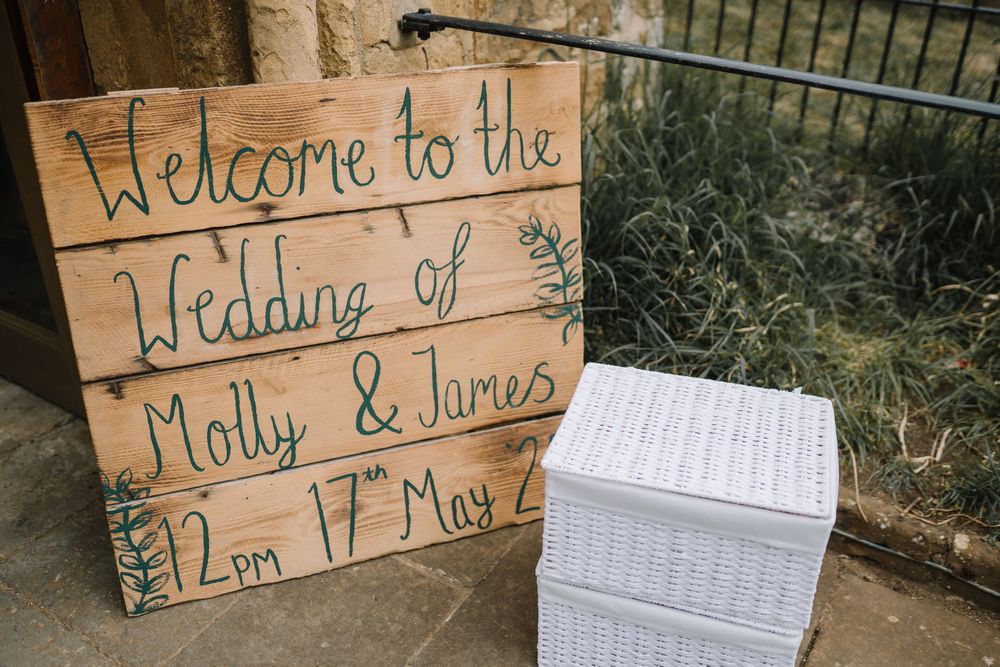 Welcome to the
Wedding of
Molly & James
12pm 17th May 2